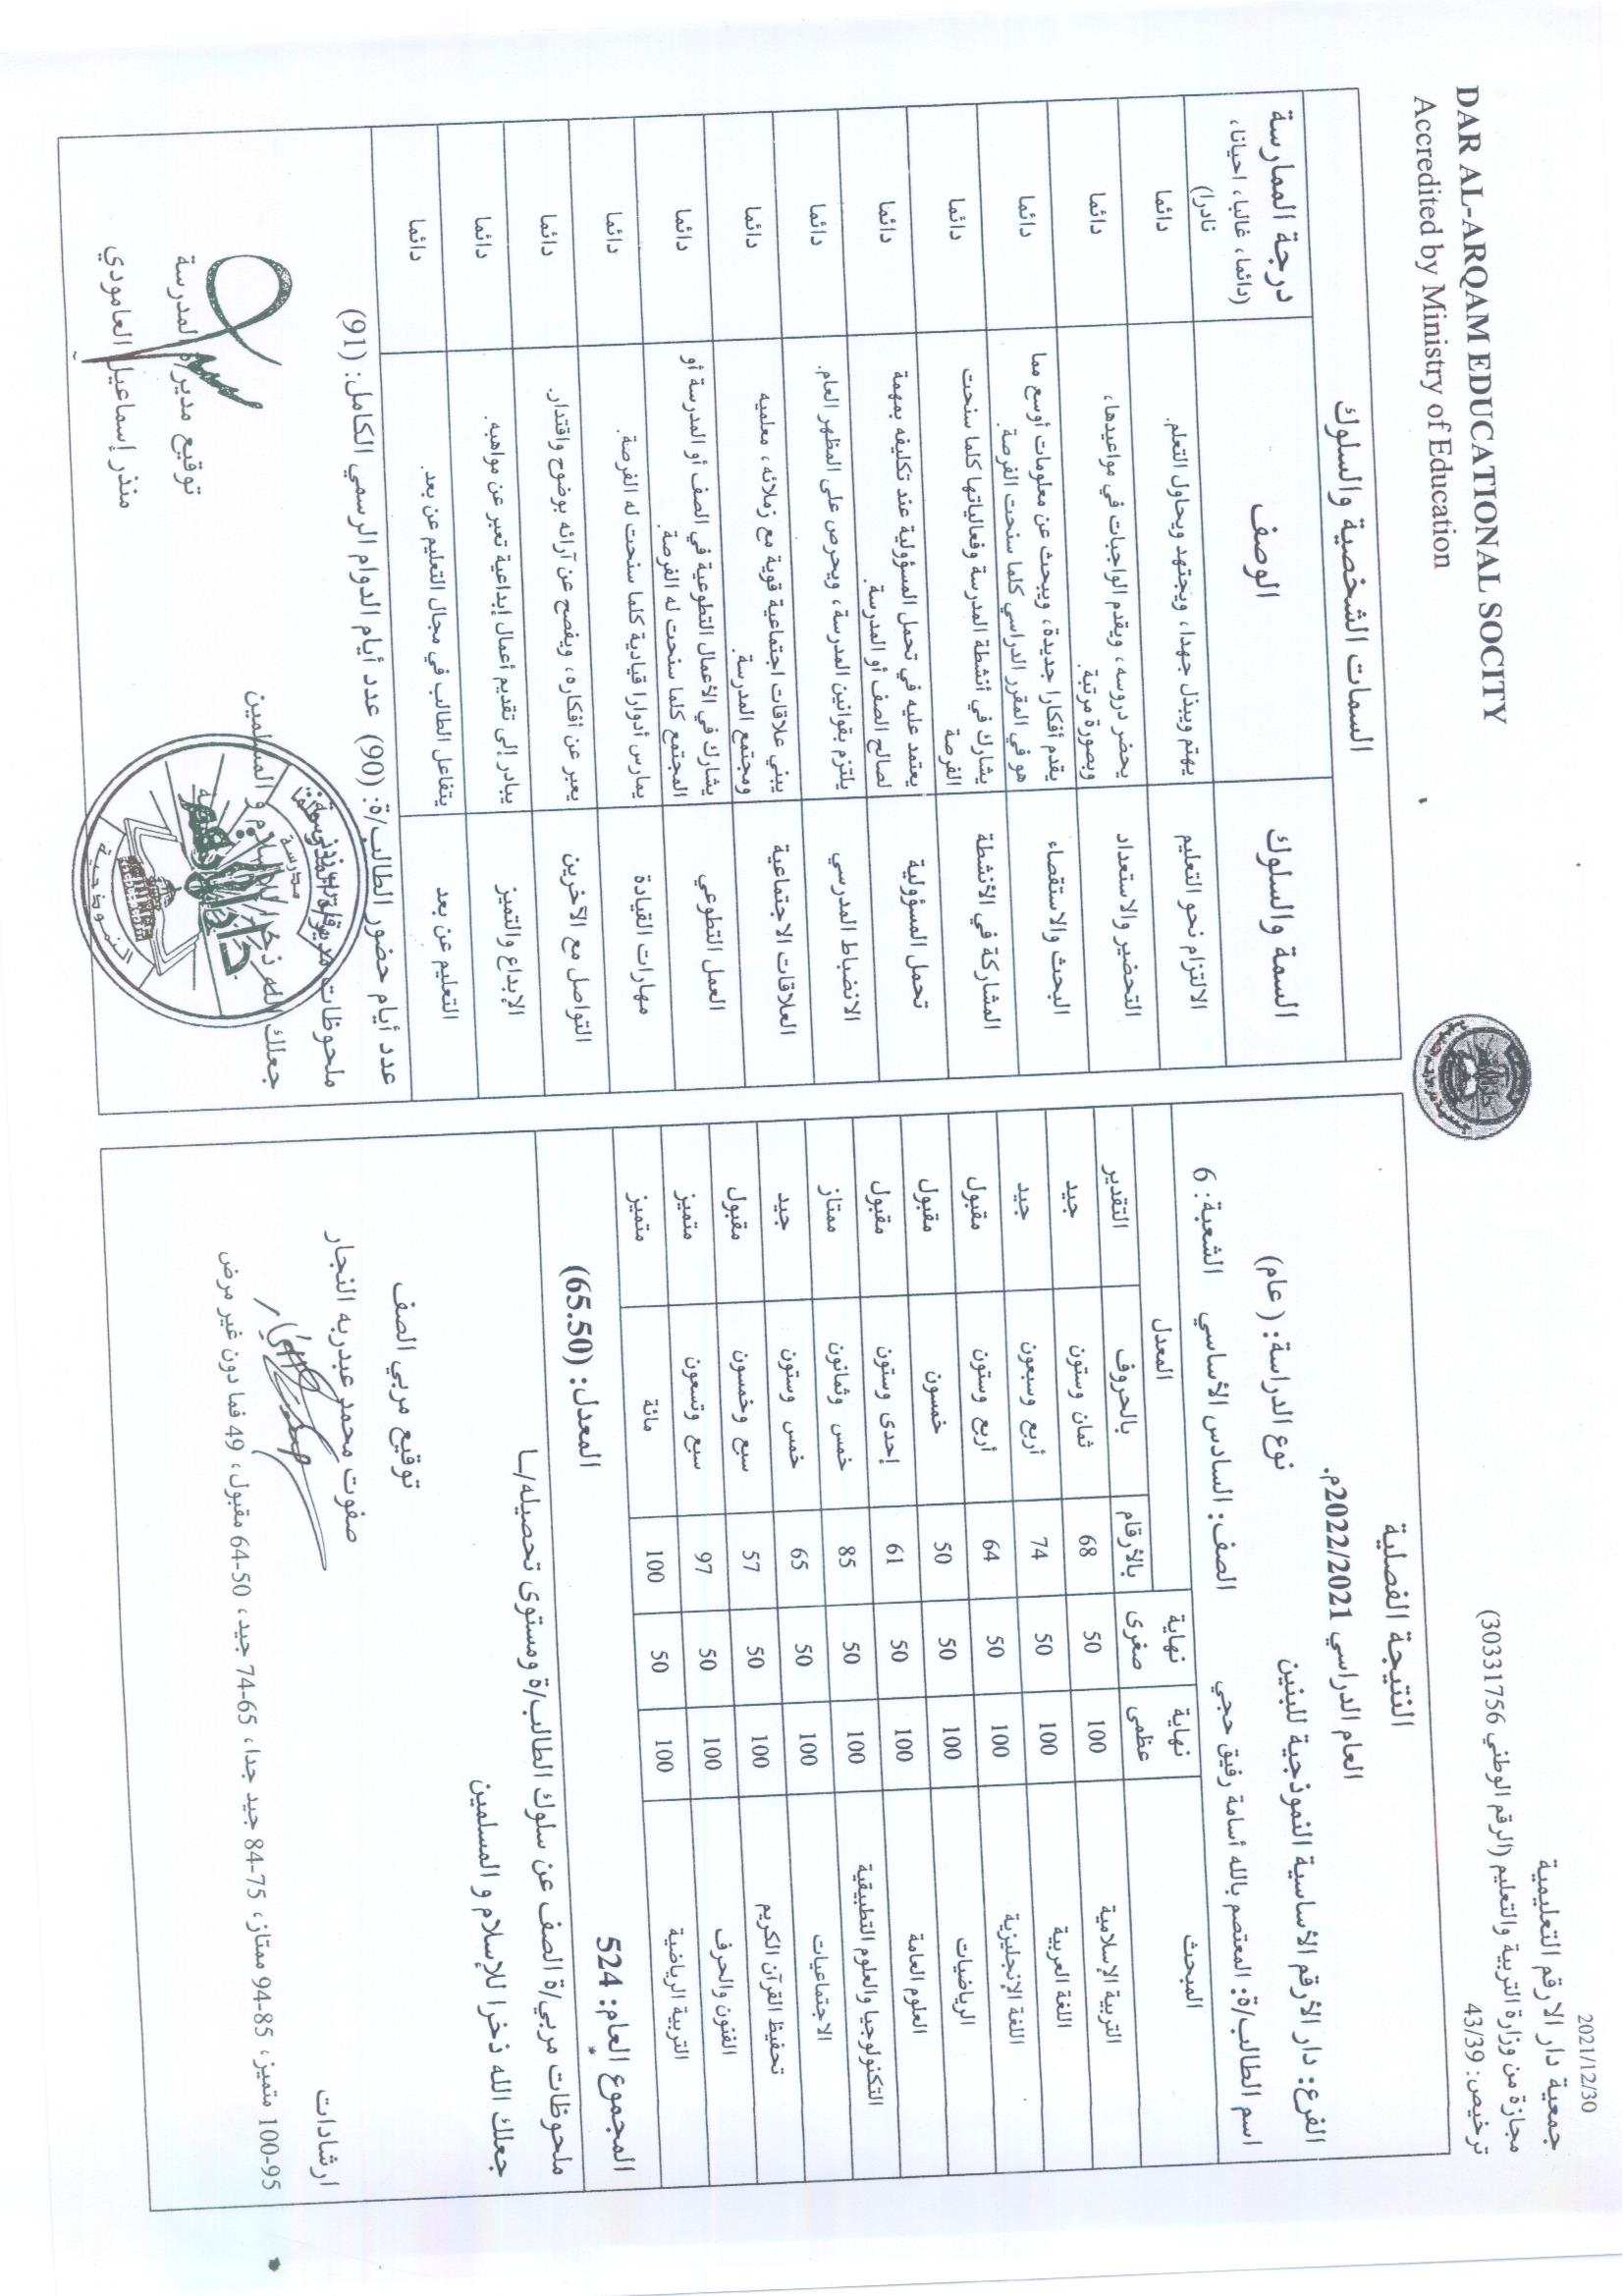 2021/12/30
جمعية دار الارقم التعليمية
مجازة من وزارة التربية والتعليم (الرقم الوطني 30331756)
ترخيص: 43/39
DAR AL-ARQAM EDUCATIONAL SOCITY
Accredited by Ministry of Education
النتيجة الفصلية
العام الدراسي 2022/2021م.
الفرع: دار الأرقم الأساسية النموذجية للبنين نوع الدراسة: (عام)
اسم الطالب/ة: المعتصم بالله أسامة رفيق حجي الصف: السادس الأساسي الشعبة: 6
المبحث نهاية عظمى نهاية صغرى المعدل
بالأرقام بالحروف التقدير
التربية الإسلامية 100 50 68 ثمان وستون جيد
اللغة العربية 100 50 74 أربع وسبعون جيد
اللغة الإنجليزية 100 50 64 أربع وستون مقبول
الرياضيات 100 50 50 خمسون مقبول
العلوم العامة 100 50 61 إحدى وستون مقبول
التكنولوجيا والعلوم التطبيقية 100 50 85 خمس وثمانون ممتاز
الاجتماعيات 100 50 65 خمس وستون جيد
تحفيظ القرآن الكريم 100 50 57 سبع وخمسون مقبول
الفنون والحرف 100 50 97 سبع وتسعون متميز
التربية الرياضية 100 50 100 مائة متميز
المجموع العام: 524 المعدل: (65.50)
ملحوظات مربي/ة الصف عن سلوك الطالب/ة ومستوى تحصيله/ـا
جعلك الله ذخرا للإسلام و المسلمين
توقيع مربي الصف
صفوت محمد عبدربه النجار
ارشادات
100-95 متميز، 94-85 ممتاز، 84-75 جيد جدا، 74-65 جيد، 64-50 مقبول، 49 فما دون غير مرض
السمات الشخصية والسلوك
السمة والسلوك الوصف درجة الممارسة
(دائما، غالبا، احيانا، نادرا)
الالتزام نحو التعليم يهتم ويبذل جهدا، ويجتهد ويحاول التعلم. دائما
التحضير والاستعداد يحضر دروسه، ويقدم الواجبات في مواعيدها، وبصورة مرتبة. دائما
البحث والاستقصاء يقدم أفكارا جديدة، ويبحث عن معلومات أوسع مما هو في المقرر الدراسي كلما سنحت الفرصة. دائما
المشاركة في الأنشطة يشارك في أنشطة المدرسة وفعالياتها كلما سنحت الفرصة دائما
تحمل المسؤولية يعتمد عليه في تحمل المسؤولية عند تكليفه بمهمة لصالح الصف أو المدرسة. دائما
الانضباط المدرسي يلتزم بقوانين المدرسة، ويحرص على المظهر العام. دائما
العلاقات الاجتماعية يبني علاقات اجتماعية قوية مع زملائه، معلميه ومجتمع المدرسة. دائما
العمل التطوعي يشارك في الأعمال التطوعية في الصف أو المدرسة أو المجتمع كلما سنحت له الفرصة. دائما
مهارات القيادة يمارس أدوارا قيادية كلما سنحت له الفرصة. دائما
التواصل مع الآخرين يعبر عن أفكاره، ويفصح عن آرائه بوضوح واقتدار. دائما
الإبداع والتميز يبادر إلى تقديم أعمال إبداعية تعبر عن مواهبه. دائما
التعليم عن بعد يتفاعل الطالب في مجال التعليم عن بعد. دائما
عدد أيام حضور الطالب/ة: (90) عدد أيام الدوام الرسمي الكامل: (91)
ملحوظات
جعلك الله ذخرا للإسلام و المسلمين
توقيع مدير/ة المدرسة
منذر إسماعيل العامودي
مدرسة
دار الأرقم
النموذجية